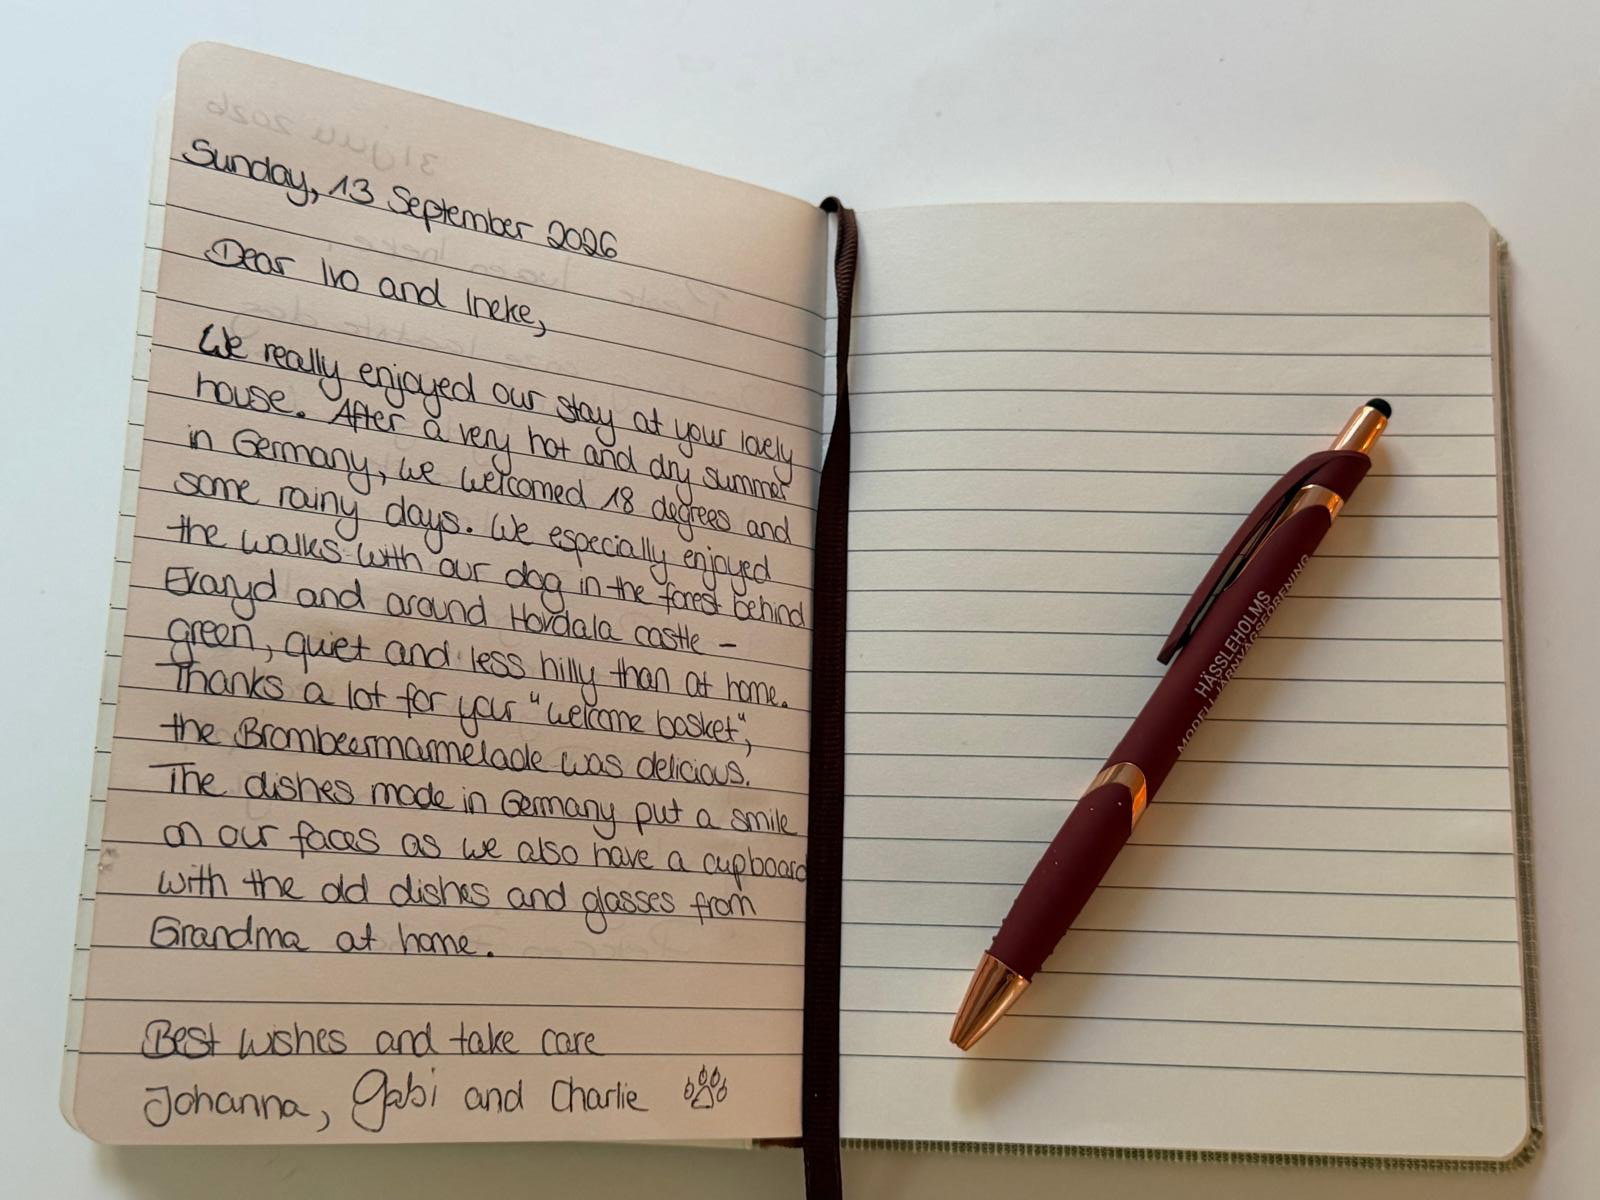 31 juli 2026
Sunday, 13 September 2026
Dear Ivo and Ineke,
We really enjoyed our stay at your lovely
house. After a very hot and dry summer
in Germany, we welcomed 18 degrees and
some rainy days. We especially enjoyed
the walks with our dog in the forest behind
Ekaryd and around Hovdala castle –
green, quiet and less hilly than at home.
Thanks a lot for your "welcome basket",
the Brombeermarmelade was delicious.
The dishes made in Germany put a smile
on our faces as we also have a cupboard
with the old dishes and glasses from
Grandma at home.
Best wishes and take care
Johanna, Gabi and Charlie
HÄSSLEHOLMS
MODELLJÄRNVÄGSFÖRENING